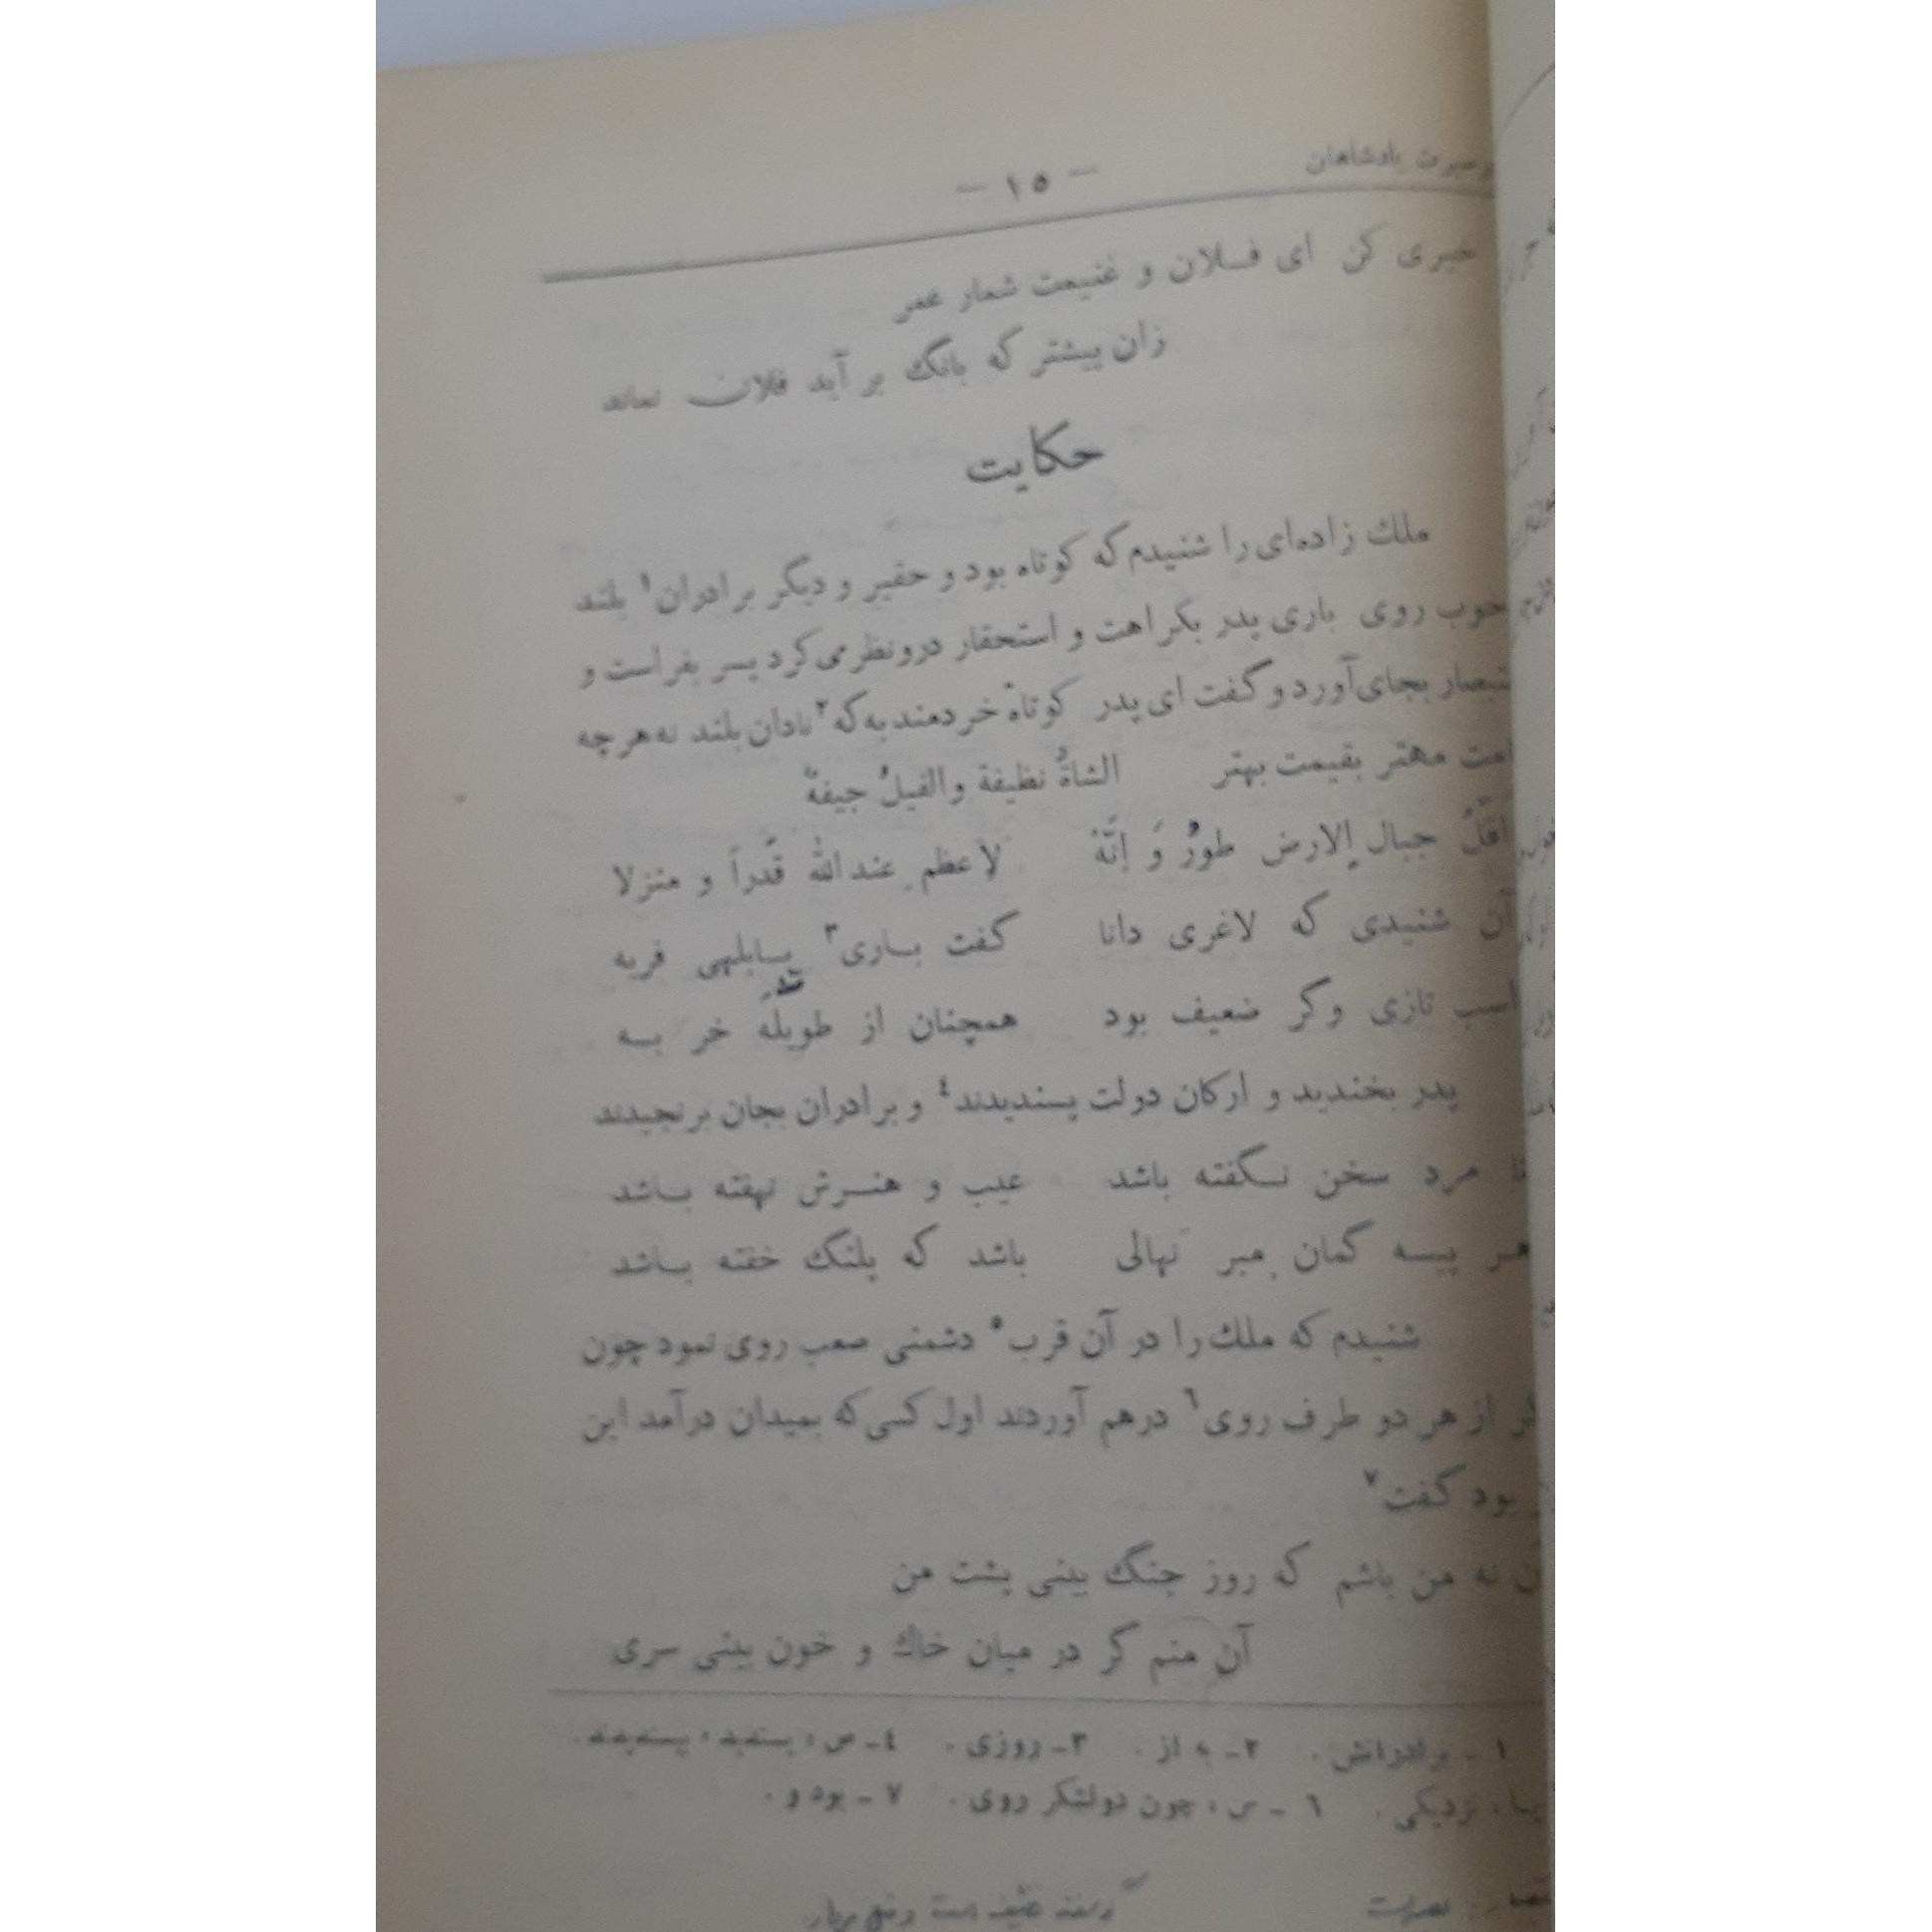 پادشاهان
- ١٥ -
خیری کن ای فلان و غنیمت شمار عمر
زان پیشتر که بانگ بر آید فلان نماند
حکایت
ملك زاده‌ای را شنیدم که کوتاه بود و حقیر و دیگر برادران۱ بلند
خوب روی باری پدر بکراهت و استحقار درو نظر می‌کرد پسر بفراست و
بجای آورد و گفت ای پدر کوتاه خردمند به که۲ نادان بلند نه هر چه
مهتر بقیمت بهتر الشاةُ نظیفة والفیلُ جیفةٌ
اقلُّ جبالِ الارض طورٌ وَ اِنَّهُ لاَعظم عندالله قَدراً و منزلا
آن شنیدی که لاغری دانا گفت باری۳ بابلهی فربه
اسب تازی وگر ضعیف بود همچنان از طویلَه خر به
پدر بخندید و ارکان دولت پسندیدند٤ و برادران بجان برنجیدند
تا مرد سخن نگفته باشد عیب و هنرش نهفته باشد
هر پیسه گمان مبر نهالی باشد که پلنگ خفته باشد
شنیدم که ملك را در آن قرب٥ دشمنی صعب روی نمود چون
از هر دو طرف روی٦ درهم آوردند اول کسی که بمیدان درآمد این
بود گفت۷
نه من باشم که روز جنگ بینی پشت من
آن منم گر در میان خاك و خون بینی سری
۱ - برادرانش. ۲- به از. ۳- روزی. ٤- س، پسندید، پسندیدند.
نزدیکی. ٦ - س، چون دولشکر روی. ۷ - بود و.